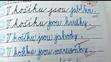 V košíku jsou jablka.
V košíku jsou hrušky.
V košíku jsou jahody.
V košíku jsou